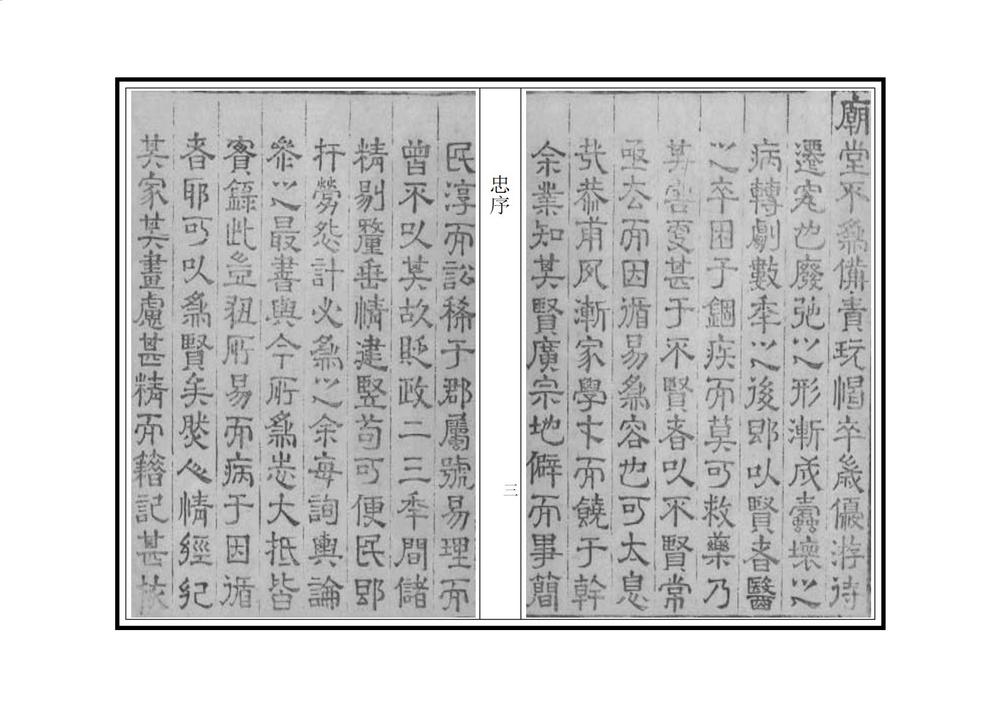 廟堂不爲備責玩愒卒歲優游待
遷宂也廢弛之形漸成蠹壞之
病轉劇數秊之後卽以賢者醫
之卒困于錮疾而莫可救藥乃
其害更甚于不賢者以不賢常
亟去而因循易爲容也可太息
哉恭甫夙漸家學才而饒于幹
余業知其賢廣宗地僻而事簡
忠序
三
民淳而訟稀于郡屬號易理而
曾不以其故貶政二三秊間儲
精剔釐垂情建竪茍可便民卽
扞勞怨計必爲之余每詢輿論
叅之最書與今所爲志大抵皆
實錄此豈狃所易而病于因循
者耶可以爲賢矣然人情經紀
其家其畫慮甚精而籍記甚核